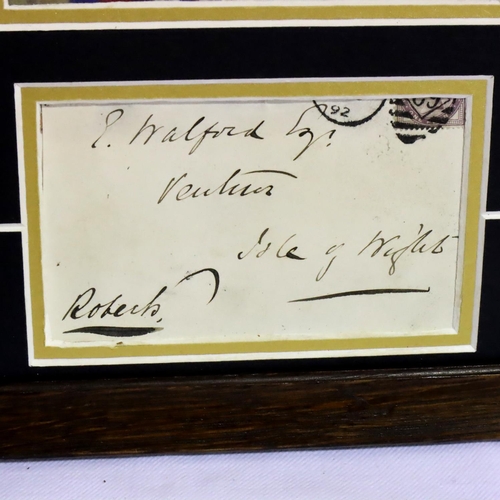 E. Walford Esqr.
Ventnor
Isle of Wight
Roberts.
92